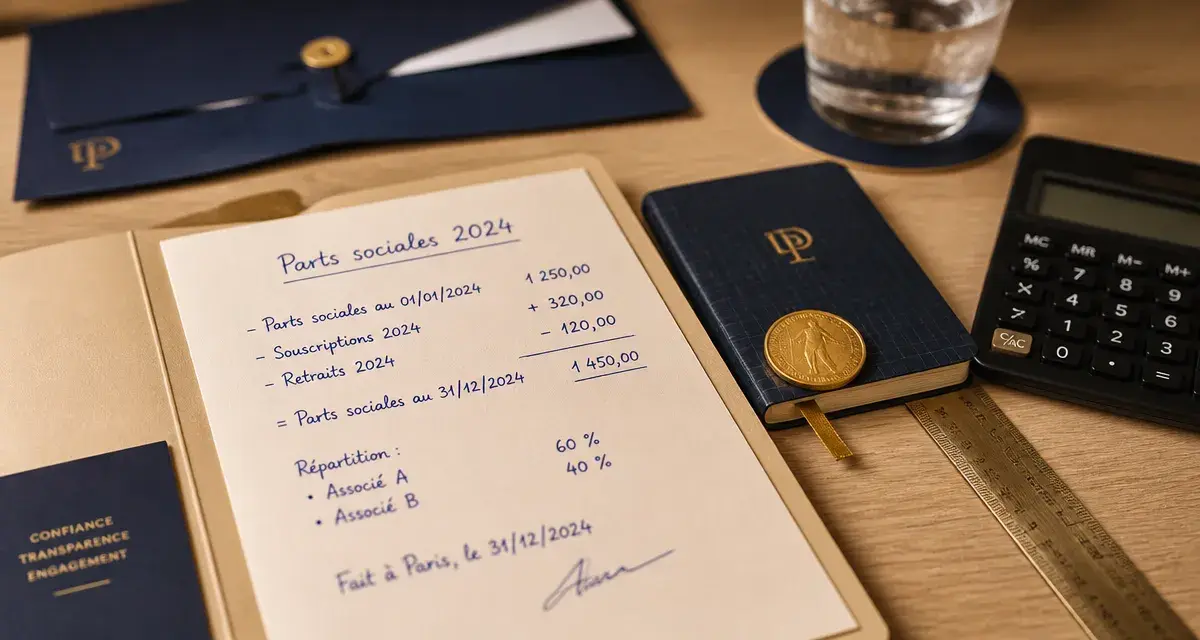 Parts sociales 2024
– Parts sociales au 01/01/2024 1 250,00
– Souscriptions 2024 + 320,00
– Retraits 2024 – 120,00
= Parts sociales au 31/12/2024 1 450,00
Répartition :
• Associé A 60 %
• Associé B 40 %
Fait à Paris, le 31/12/2024
CONFIANCE
TRANSPARENCE
ENGAGEMENT
MC MR M– M+
% 7 8 9
X 4 5 6
1 2 3
C/AC 0 • =